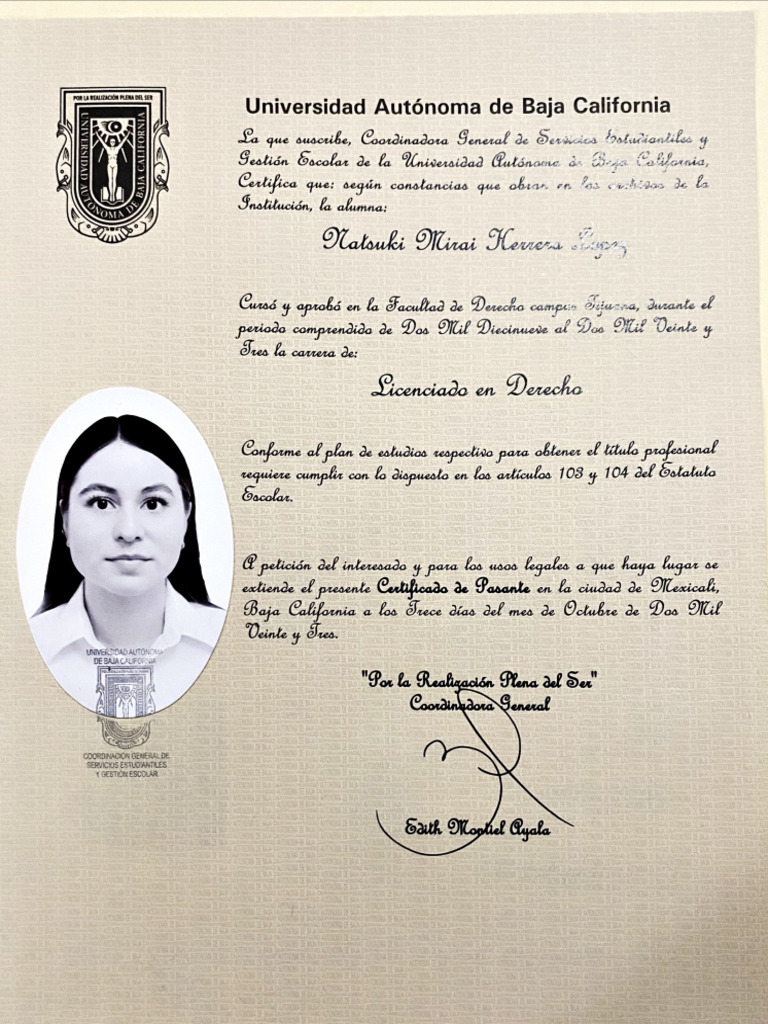 POR LA REALIZACIÓN PLENA DEL SER
UNIVERSIDAD AUTÓNOMA DE BAJA CALIFORNIA
Universidad Autónoma de Baja California
La que suscribe, Coordinadora General de Servicios Estudiantiles y
Gestión Escolar de la Universidad Autónoma de Baja California,
Certifica que: según constancias que obran en los archivos de la
Institución, la alumna:
Natsuki Mirai Herrera Lopez
Cursó y aprobó en la Facultad de Derecho campus Tijuana, durante el
periodo comprendido de Dos Mil Diecinueve al Dos Mil Veinte y
Tres la carrera de:
Licenciado en Derecho
Conforme al plan de estudios respectivo para obtener el título profesional
requiere cumplir con lo dispuesto en los artículos 103 y 104 del Estatuto
Escolar.
A petición del interesado y para los usos legales a que haya lugar se
extiende el presente Certificado de Pasante en la ciudad de Mexicali,
Baja California a los Trece días del mes de Octubre de Dos Mil
Veinte y Tres.
"Por la Realización Plena del Ser"
Coordinadora General
Edith Montiel Ayala
UNIVERSIDAD AUTÓNOMA
DE BAJA CALIFORNIA
COORDINACIÓN GENERAL DE
SERVICIOS ESTUDIANTILES
Y GESTIÓN ESCOLAR